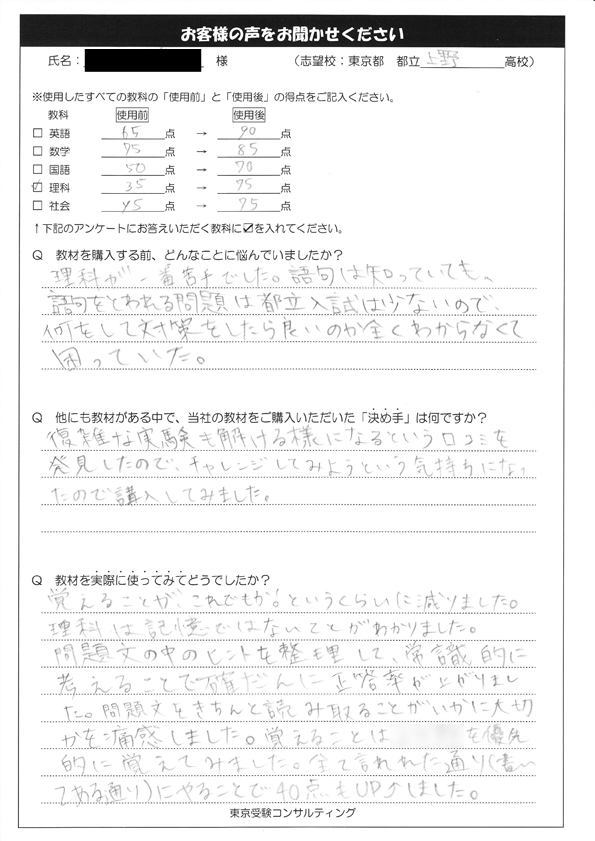 お客様の声をお聞かせください
氏名： 様 （志望校：東京都 都立上野高校）
※使用したすべての教科の「使用前」と「使用後」の得点をご記入ください。
教科 使用前 使用後
□ 英語 65点 → 90点
□ 数学 75点 → 85点
□ 国語 50点 → 70点
☑ 理科 35点 → 75点
□ 社会 45点 → 75点
↑下記のアンケートにお答えいただく教科に☑を入れてください。
Q 教材を購入する前、どんなことに悩んでいましたか？
理科が一番苦手でした。語句は知っていても、
語句をとわれる問題は都立入試は少ないので、
何をして対策をしたら良いのか全くわからなくて
困っていた。
Q 他にも教材がある中で、当社の教材をご購入いただいた「決め手」は何ですか？
復雑な実験も解ける様になるという口コミを
発見したので、チャレンジしてみようという気持ちになっ
たので講入してみました。
Q 教材を実際に使ってみてどうでしたか？
覚えることが、これでもか！というくらいに減りました。
理科は記憶ではないことがわかりました。
問題文の中のヒントを整理して、常識的に
考えることで確だんに正答率が上がりまし
た。問題文をきちんと読み取ることがいかに大切
かを痛感しました。覚えることは を優先
的に覚えてみました。全て言われた通り(書い
てある通り)にやることで40点もUPしました。
東京受験コンサルティング